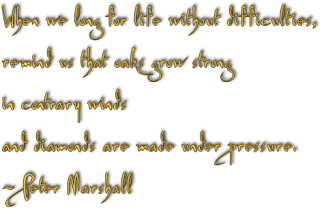 When we long for life without difficulties,
remind us that oaks grow strong
in contrary winds
and diamonds are made under pressure.
~Peter Marshall